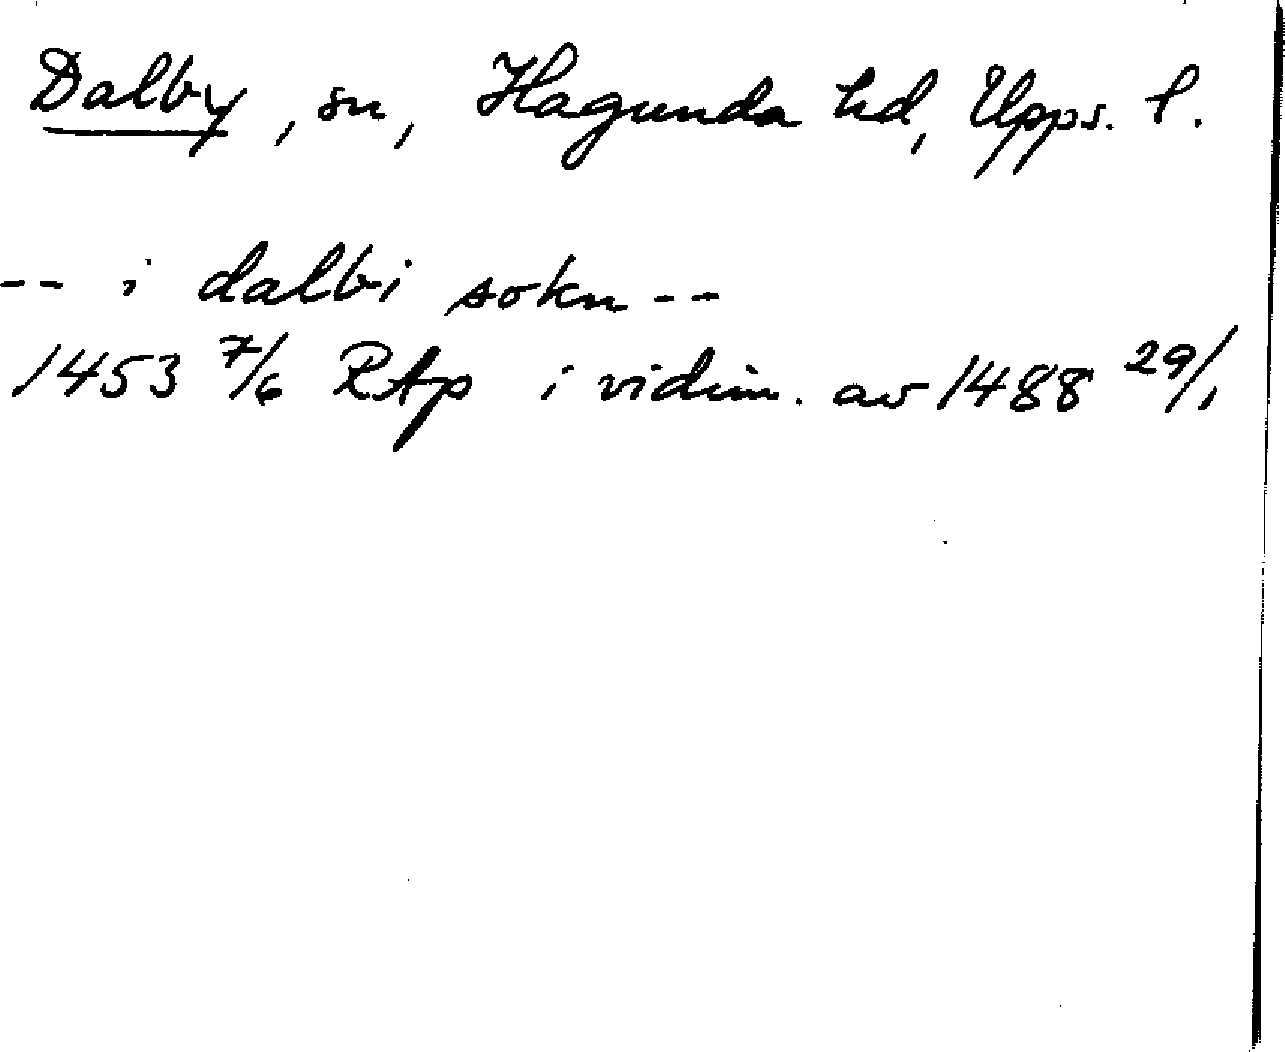 Dalby, sn, Hagunda hd, Upps. l.
-- i dalbi sokn --
1453 7/6 RAp i vidim. av 1488 29/1